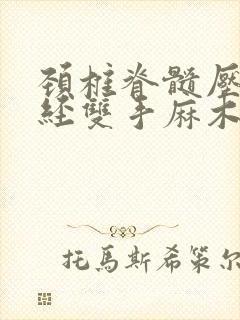 頚椎脊髓壓
經雙手麻木
托馬斯希策尔